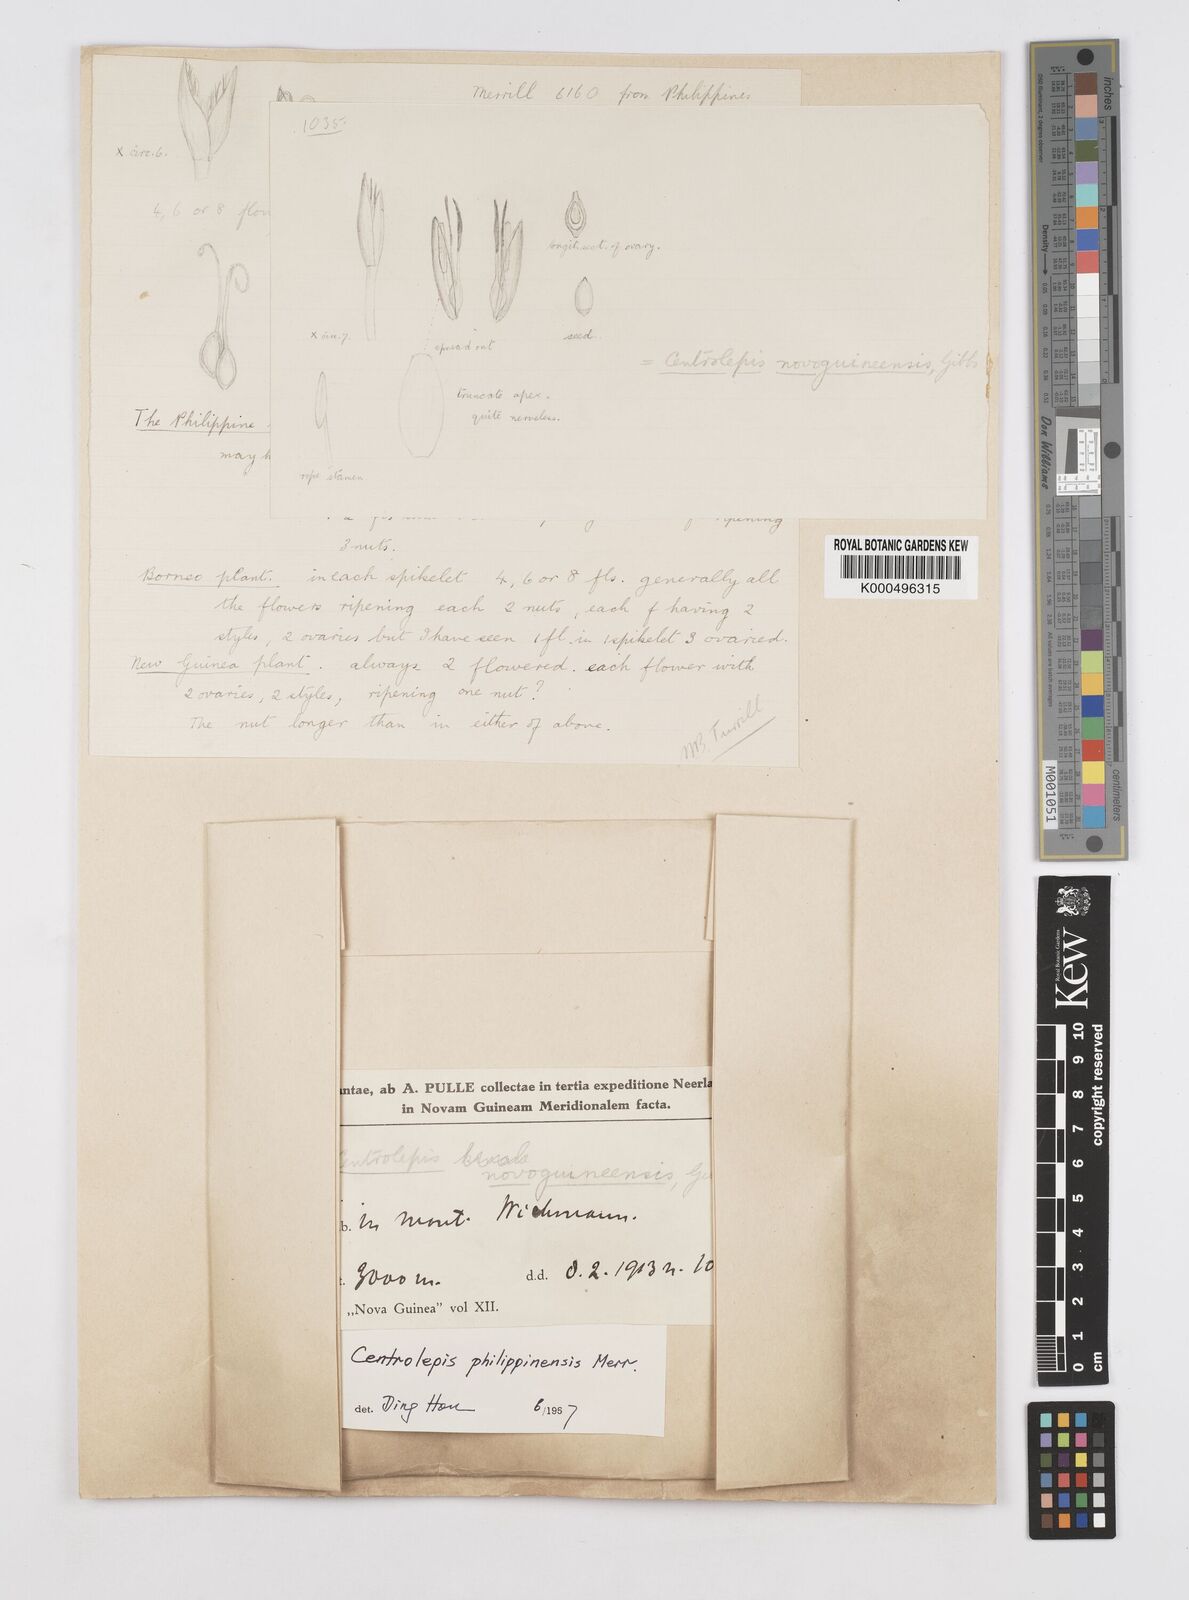 Merrill 6160 from Philippines
x circ. 6.
4, 6 or 8
1035
x circ. 7.
spread out
longit. sect. of ovary.
seed.
= Centrolepis novoguineensis, Gibbs
truncate apex.
quite nerveless.
stamen
The Philippine
may
ripening
3 nuts.
Borneo plant. in each spikelet 4, 6 or 8 fls. generally all
the flowers ripening each 2 nuts, each f having 2
styles, 2 ovaries but I have seen 1 fl. in 1 spikelet 3 ovaried.
New Guinea plant. always 2 flowered. each flower with
2 ovaries, 2 styles, ripening one nut?
The nut longer than in either of above.
WB. Turrill
ROYAL BOTANIC GARDENS KEW
K000496315
ntae, ab A. PULLE collectae in tertia expeditione Neerla
in Novam Guineam Meridionalem facta.
entrolepis
novoguineensis, Gi
b. in mont. Wichmann.
t. 3000 m. d.d. 8.2.1913 n. 10
„Nova Guinea" vol XII.
Centrolepis philippinensis Merr.
det. Ding Hou 6/1957
inches
centimeters
Density
Don Williams
M001051
Royal Botanic Gardens
Kew
copyright reserved
0 1 2 3 4 5 6 7 8 9 10
cm